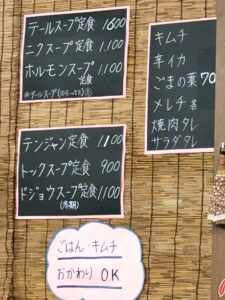 テールスープ定食 1600
ニクスープ定食 1,100
ホルモンスープ 1,100
定食
テンジャン定食 1100
トックスープ定食 900
ドジョウスープ定食 1100
(冬期)
ごはん・キムチ
おかわり OK
キムチ
辛イカ
ごまの葉 70
メレチ
焼肉タレ
サラダタレ